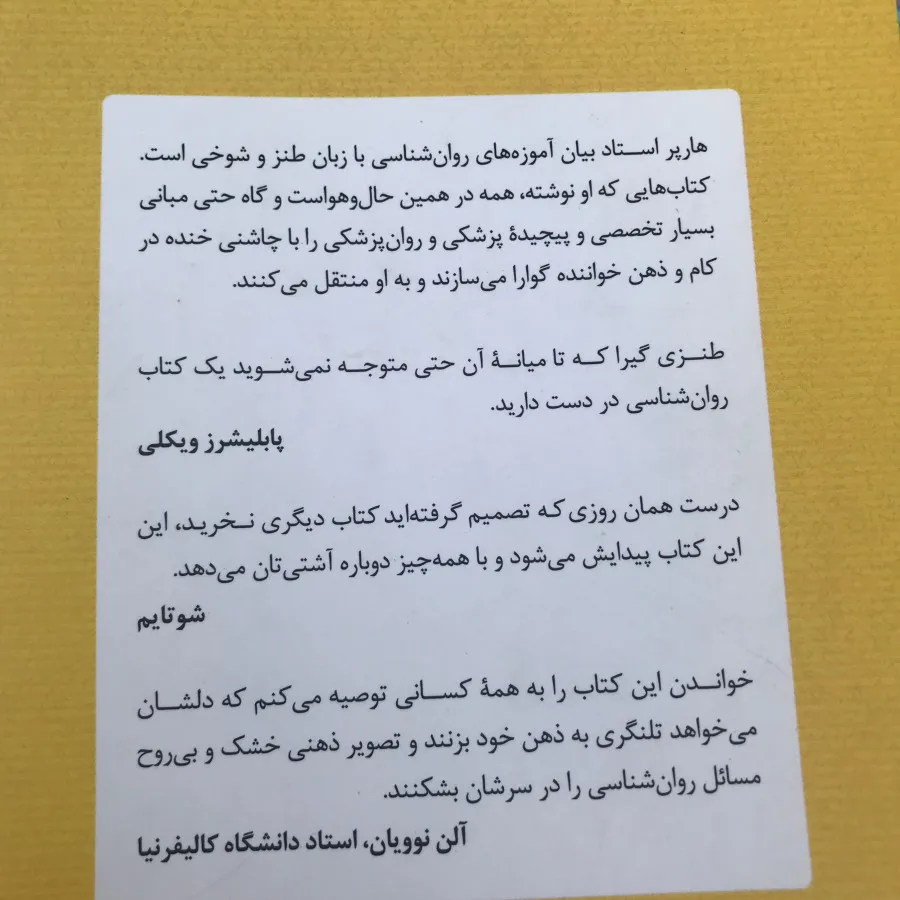 هارپر استاد بیان آموزه‌های روان‌شناسی با زبان طنز و شوخی است.
کتاب‌هایی که او نوشته، همه در همین حال‌وهواست و گاه حتی مبانی
بسیار تخصصی و پیچیدهٔ پزشکی و روان‌پزشکی را با چاشنی خنده در
کام و ذهن خواننده گوارا می‌سازند و به او منتقل می‌کنند.
طنزی گیرا که تا میانهٔ آن حتی متوجه نمی‌شوید یک کتاب
روان‌شناسی در دست دارید.
پابلیشرز ویکلی
درست همان روزی که تصمیم گرفته‌اید کتاب دیگری نخرید، این
این کتاب پیدایش می‌شود و با همه‌چیز دوباره آشتی‌تان می‌دهد.
شوتایم
خواندن این کتاب را به همهٔ کسانی توصیه می‌کنم که دلشان
می‌خواهد تلنگری به ذهن خود بزنند و تصویر ذهنی خشک و بی‌روح
مسائل روان‌شناسی را در سرشان بشکنند.
آلن نوویان، استاد دانشگاه کالیفرنیا